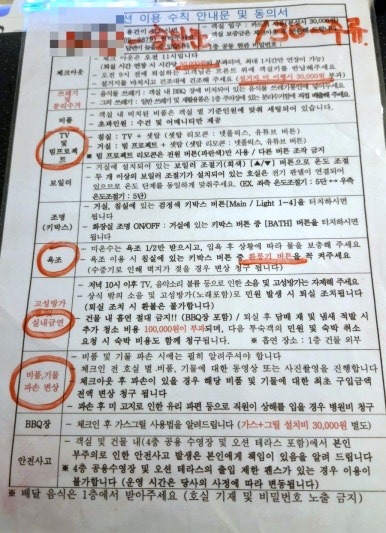 션 이용 수칙 안내문 및 동의서
체크아웃
- 체크아웃은 오전 11시입니다
쓰레기 분리수거
비품
- 객실 내 비치된 비품은 객실별 기준인원에 맞춰 세팅되어 있습니다.
- 초과인원 : 수건 및 어메니티만 제공
TV 및 빔프로젝트
- 침실 : TV + 셋탑 (셋탑 리모콘 : 넷플릭스, 유튜브 버튼)
- 거실 : 빔 프로젝트 + 셋탑 (셋탑 리모콘 : 넷플릭스, 유튜브 버튼)
※ 빔 프로젝트 리모콘은 전원 버튼(파란색)만 사용 / 다른 버튼 조작 금지
보일러
- 거실에 설치되어 있는 보일러 조절기(회색) [▲/▼] 버튼으로 온도 조절
- 두 개 이상의 보일러 조절기가 설치되어 있는 호실은 전기 판넬이 연결되어
있으므로 온도 단계를 동일하게 맞춰주세요. (EX. 좌측 온도조절기 : 5단 ↔ 우측
온도조절기 : 5단)
조명 (키박스)
- 거실, 침실에 있는 검정색 키박스 버튼[Main / Light 1~4]을 터치하시면
됩니다
- 화장실 조명 ON/OFF : 거실에 있는 키박스 버튼 중 [BATH] 버튼을 터치하시면
됩니다
욕조
- 미온수는 욕조 1/2만 받으시고, 입욕 후 상황에 따라 물을 보충해 주세요
- 욕조 이용 시 침실에 있는 키박스 버튼 중 환풍기 버튼을 꼭 켜주세요
(수증기로 인해 벽지가 젖을 경우 변상 청구 됩니다)
고성방가
- 저녁 10시 이후 TV, 음악소리 볼륨 등으로 인한 소음 및 고성방가는 자제해 주세요
- 상식 밖의 소음 및 고성방가(노래포함)로 민원 발생 시 퇴실 조치됩니다
(퇴실 조치 시 환불은 불가합니다)
실내금연
- 건물 내 흡연 절대 금지!! (BBQ장 포함) / 퇴실 후 담배 재 및 냄새 적발 시
추가 청소 비용 100,000원이 부과되며, 다음 투숙객의 민원 및 숙박 취소
요청 시 숙박 비용도 함께 청구됩니다. ※ 흡연 장소 : 1층 건물 외부
비품,기물 파손 변상
- 비품 및 기물 파손 시에는 필히 알려주셔야 합니다
- 체크인 전 호실 별 비품, 기물에 대한 동영상 또는 사진촬영을 진행합니다
체크아웃 후 파손이 있을 경우 해당 비품 및 기물에 대한 최초 구입금액
전액 변상 청구 됩니다
- 파손 후 미 고지로 인한 유리 파편 등으로 직원이 상해를 입을 경우 병원비 청구
BBQ장
- 체크인 후 가스그릴 사용법을 알려드립니다 (가스+그릴 설치비 30,000원 별도)
안전사고
- 객실 및 건물 내(4층 공용 수영장 및 오션 테라스 포함)에서 본인
부주의로 인한 안전사고 발생은 본인에게 책임이 있음을 알려 드립니다
※ 4층 공용수영장 및 오션 테라스의 출입 제한 팬스가 있는 경우 이용이
불가합니다 (운영 시간은 당사의 사정에 따라 변동됩니다)
※ 배달 음식은 1층에서 받아주세요 (호실 기재 및 비밀번호 노출 금지)